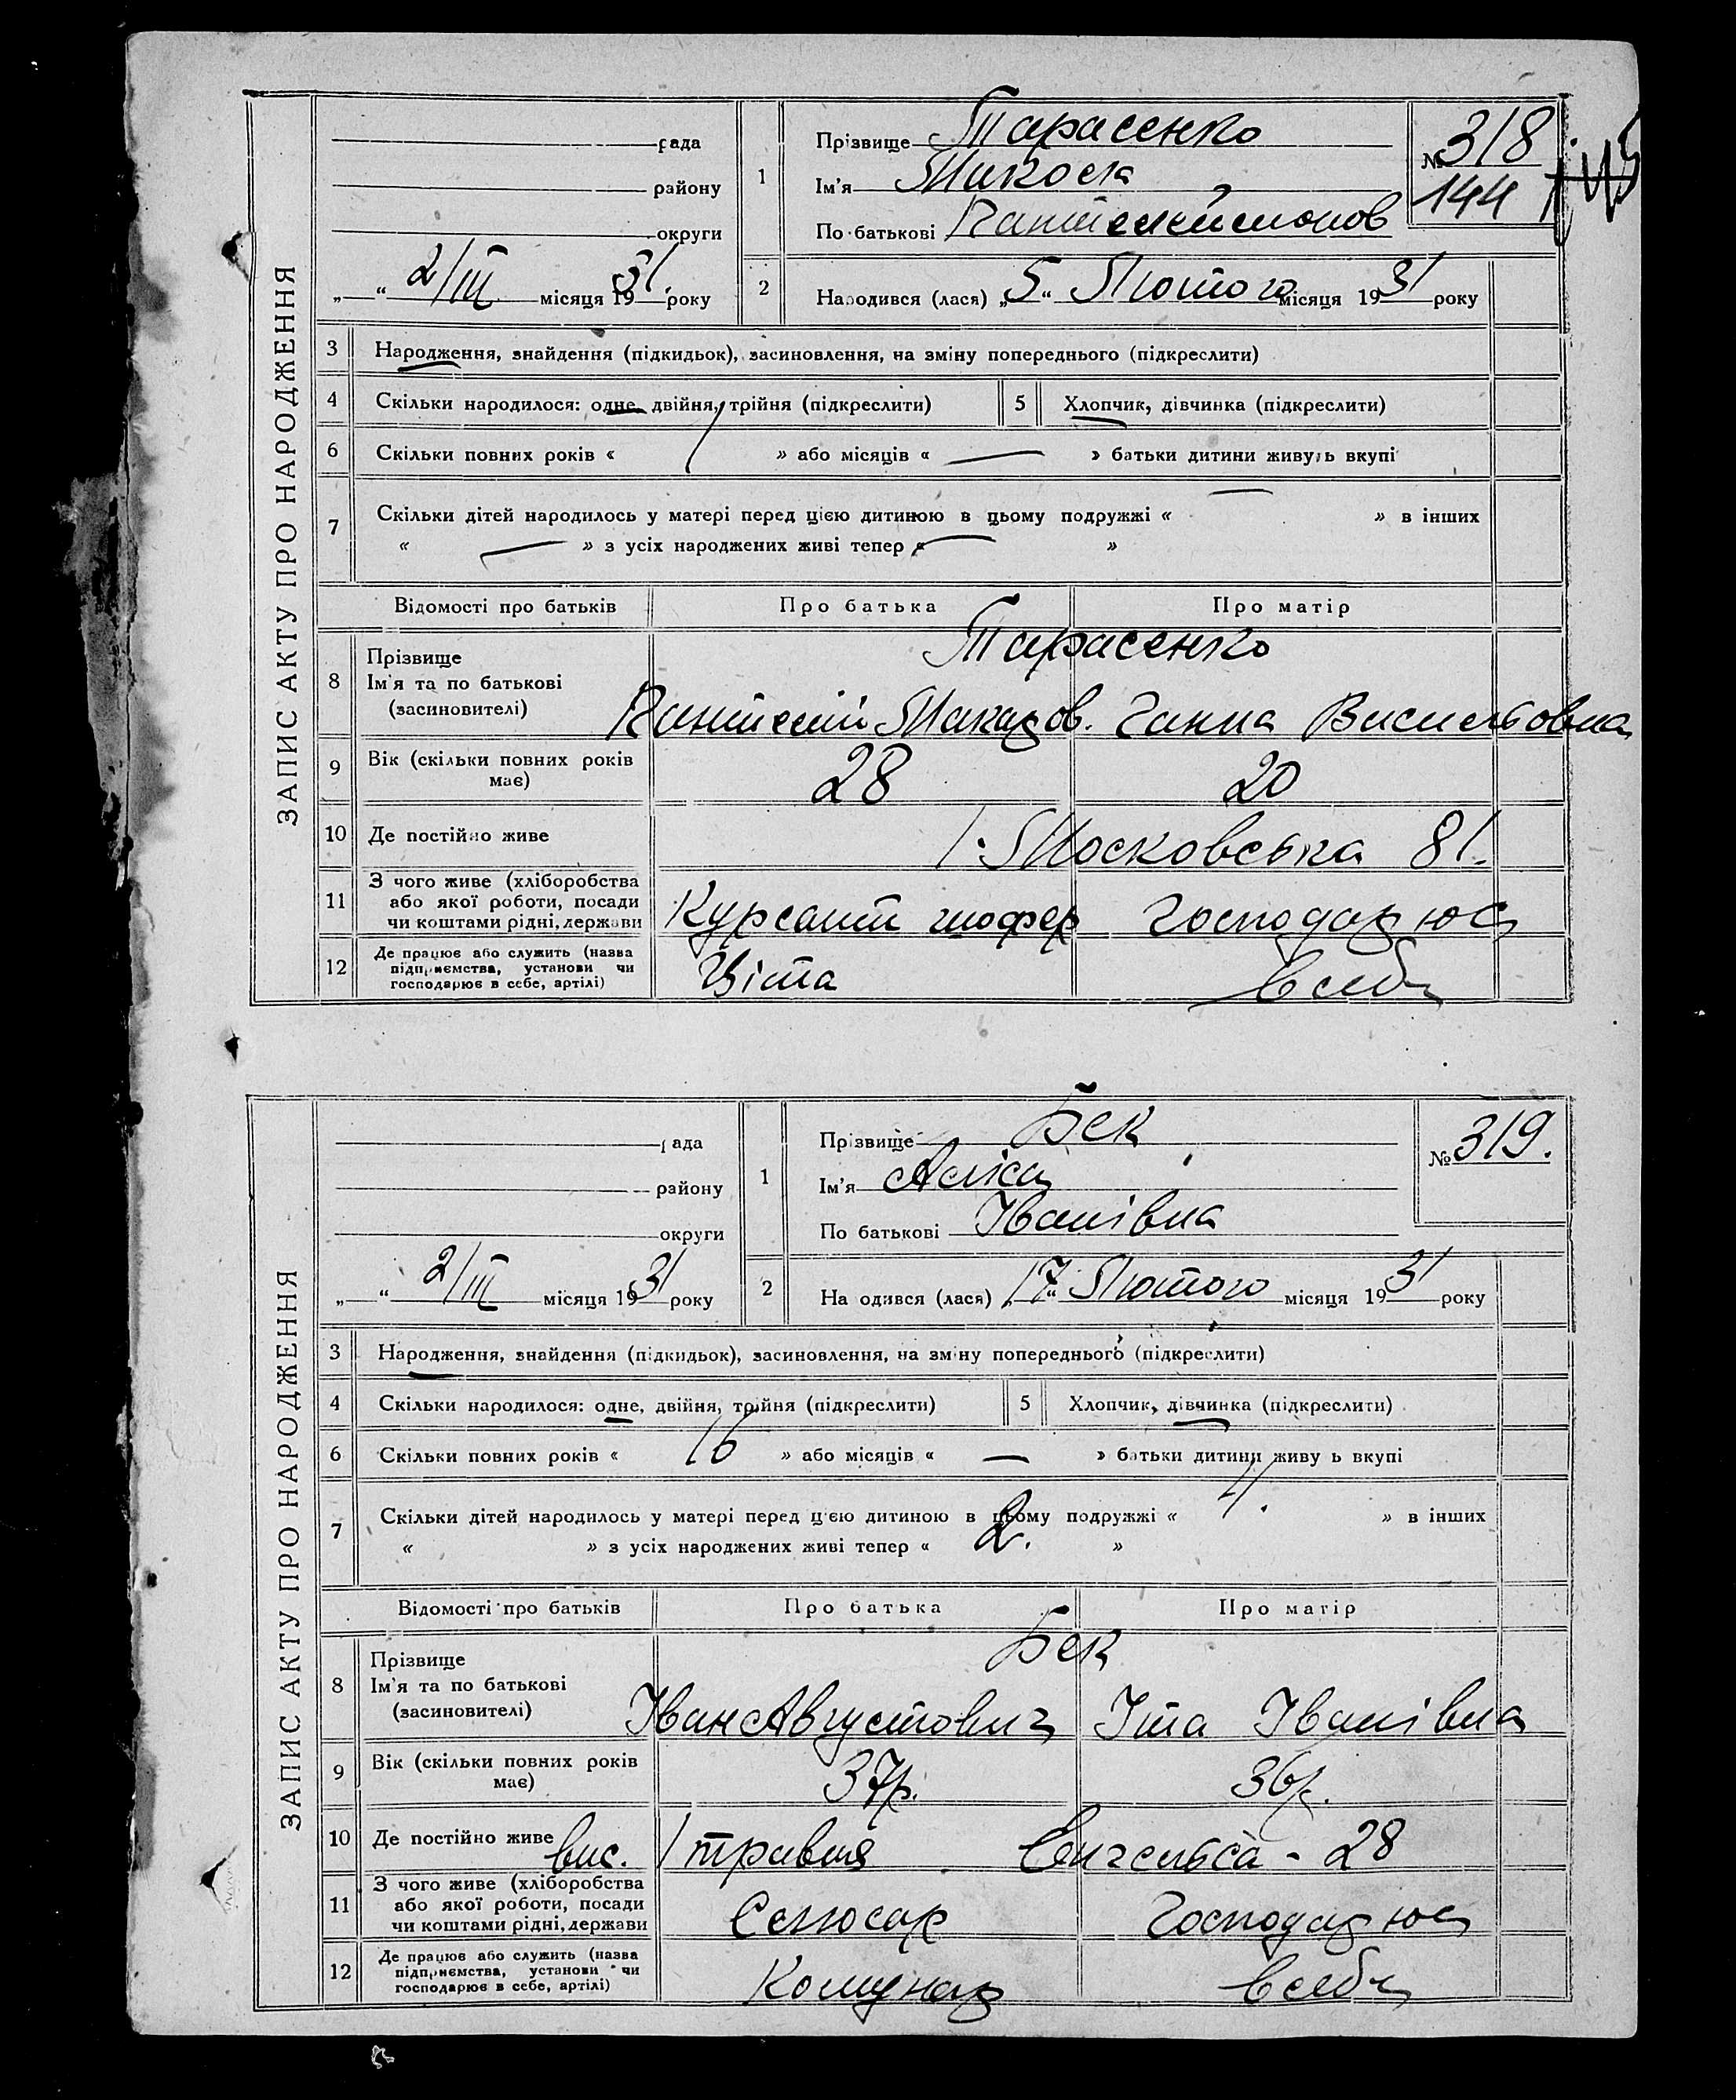 ЗАПИС АКТУ ПРО НАРОДЖЕННЯ
рада
району
округи
„ “ 2/III місяця 1931. року
1
Прізвище Тарасенко
Ім'я Микола
По батькові Пантелеймонов
№ 318
144
2
Народився (лася) „5“ Лютого місяця 1931 року
3 Народження, знайдення (підкидьок), засиновлення, на зміну попереднього (підкреслити)
4 Скільки народилося: одне, двійня, трійня (підкреслити)
5 Хлопчик, дівчинка (підкреслити)
6 Скільки повних років « 1 » або місяців « — » батьки дитини живуть вкупі
7 Скільки дітей народилось у матері перед цією дитиною в цьому подружжі « — » в інших
« — » з усіх народжених живі тепер « — »
Відомості про батьків Про батька Про матір
8 Прізвище
Ім'я та по батькові
(засновителі)
Тарасенко
Пантелій Макаров. Ганна Васильовна
9 Вік (скільки повних років має) 28 20
10 Де постійно живе 1. Московська 81.
11 З чого живе (хліборобства або якої роботи, посади чи коштами рідні, держави Курсант шофер Господарює
12 Де працює або служить (назва підприємства, установи чи господарює в себе, артілі) в себе
ЗАПИС АКТУ ПРО НАРОДЖЕННЯ
рада
району
округи
„ “ 2/III місяця 1931 року
1
Прізвище Бек
Ім'я Аліса
По батькові Іванівна
№ 319.
2
На одився (лася) „17“ Лютого місяця 1931 року
3 Народження, знайдення (підкидьок), засиновлення, на зміну попереднього (підкреслити)
4 Скільки народилося: одне, двійня, трійня (підкреслити)
5 Хлопчик, дівчинка (підкреслити)
6 Скільки повних років « 16 » або місяців « — » батьки дитини живу ь вкупі
7 Скільки дітей народилось у матері перед цією дитиною в цьому подружжі « 4. » в інших
« » з усіх народжених живі тепер « 2. »
Відомості про батьків Про батька Про матір
8 Прізвище
Ім'я та по батькові
(засиновителі)
Бек
Іван Августович Іта Іванівна
9 Вік (скільки повних років має) 37р. 36р.
10 Де постійно живе вис. 1 травня Енгельса - 28
11 З чого живе (хліборобства або якої роботи, посади чи коштами рідні, держави Слюсар Господарює
12 Де працює або служить (назва підприємства, установи чи господарює в себе, артілі) Комунар в себе